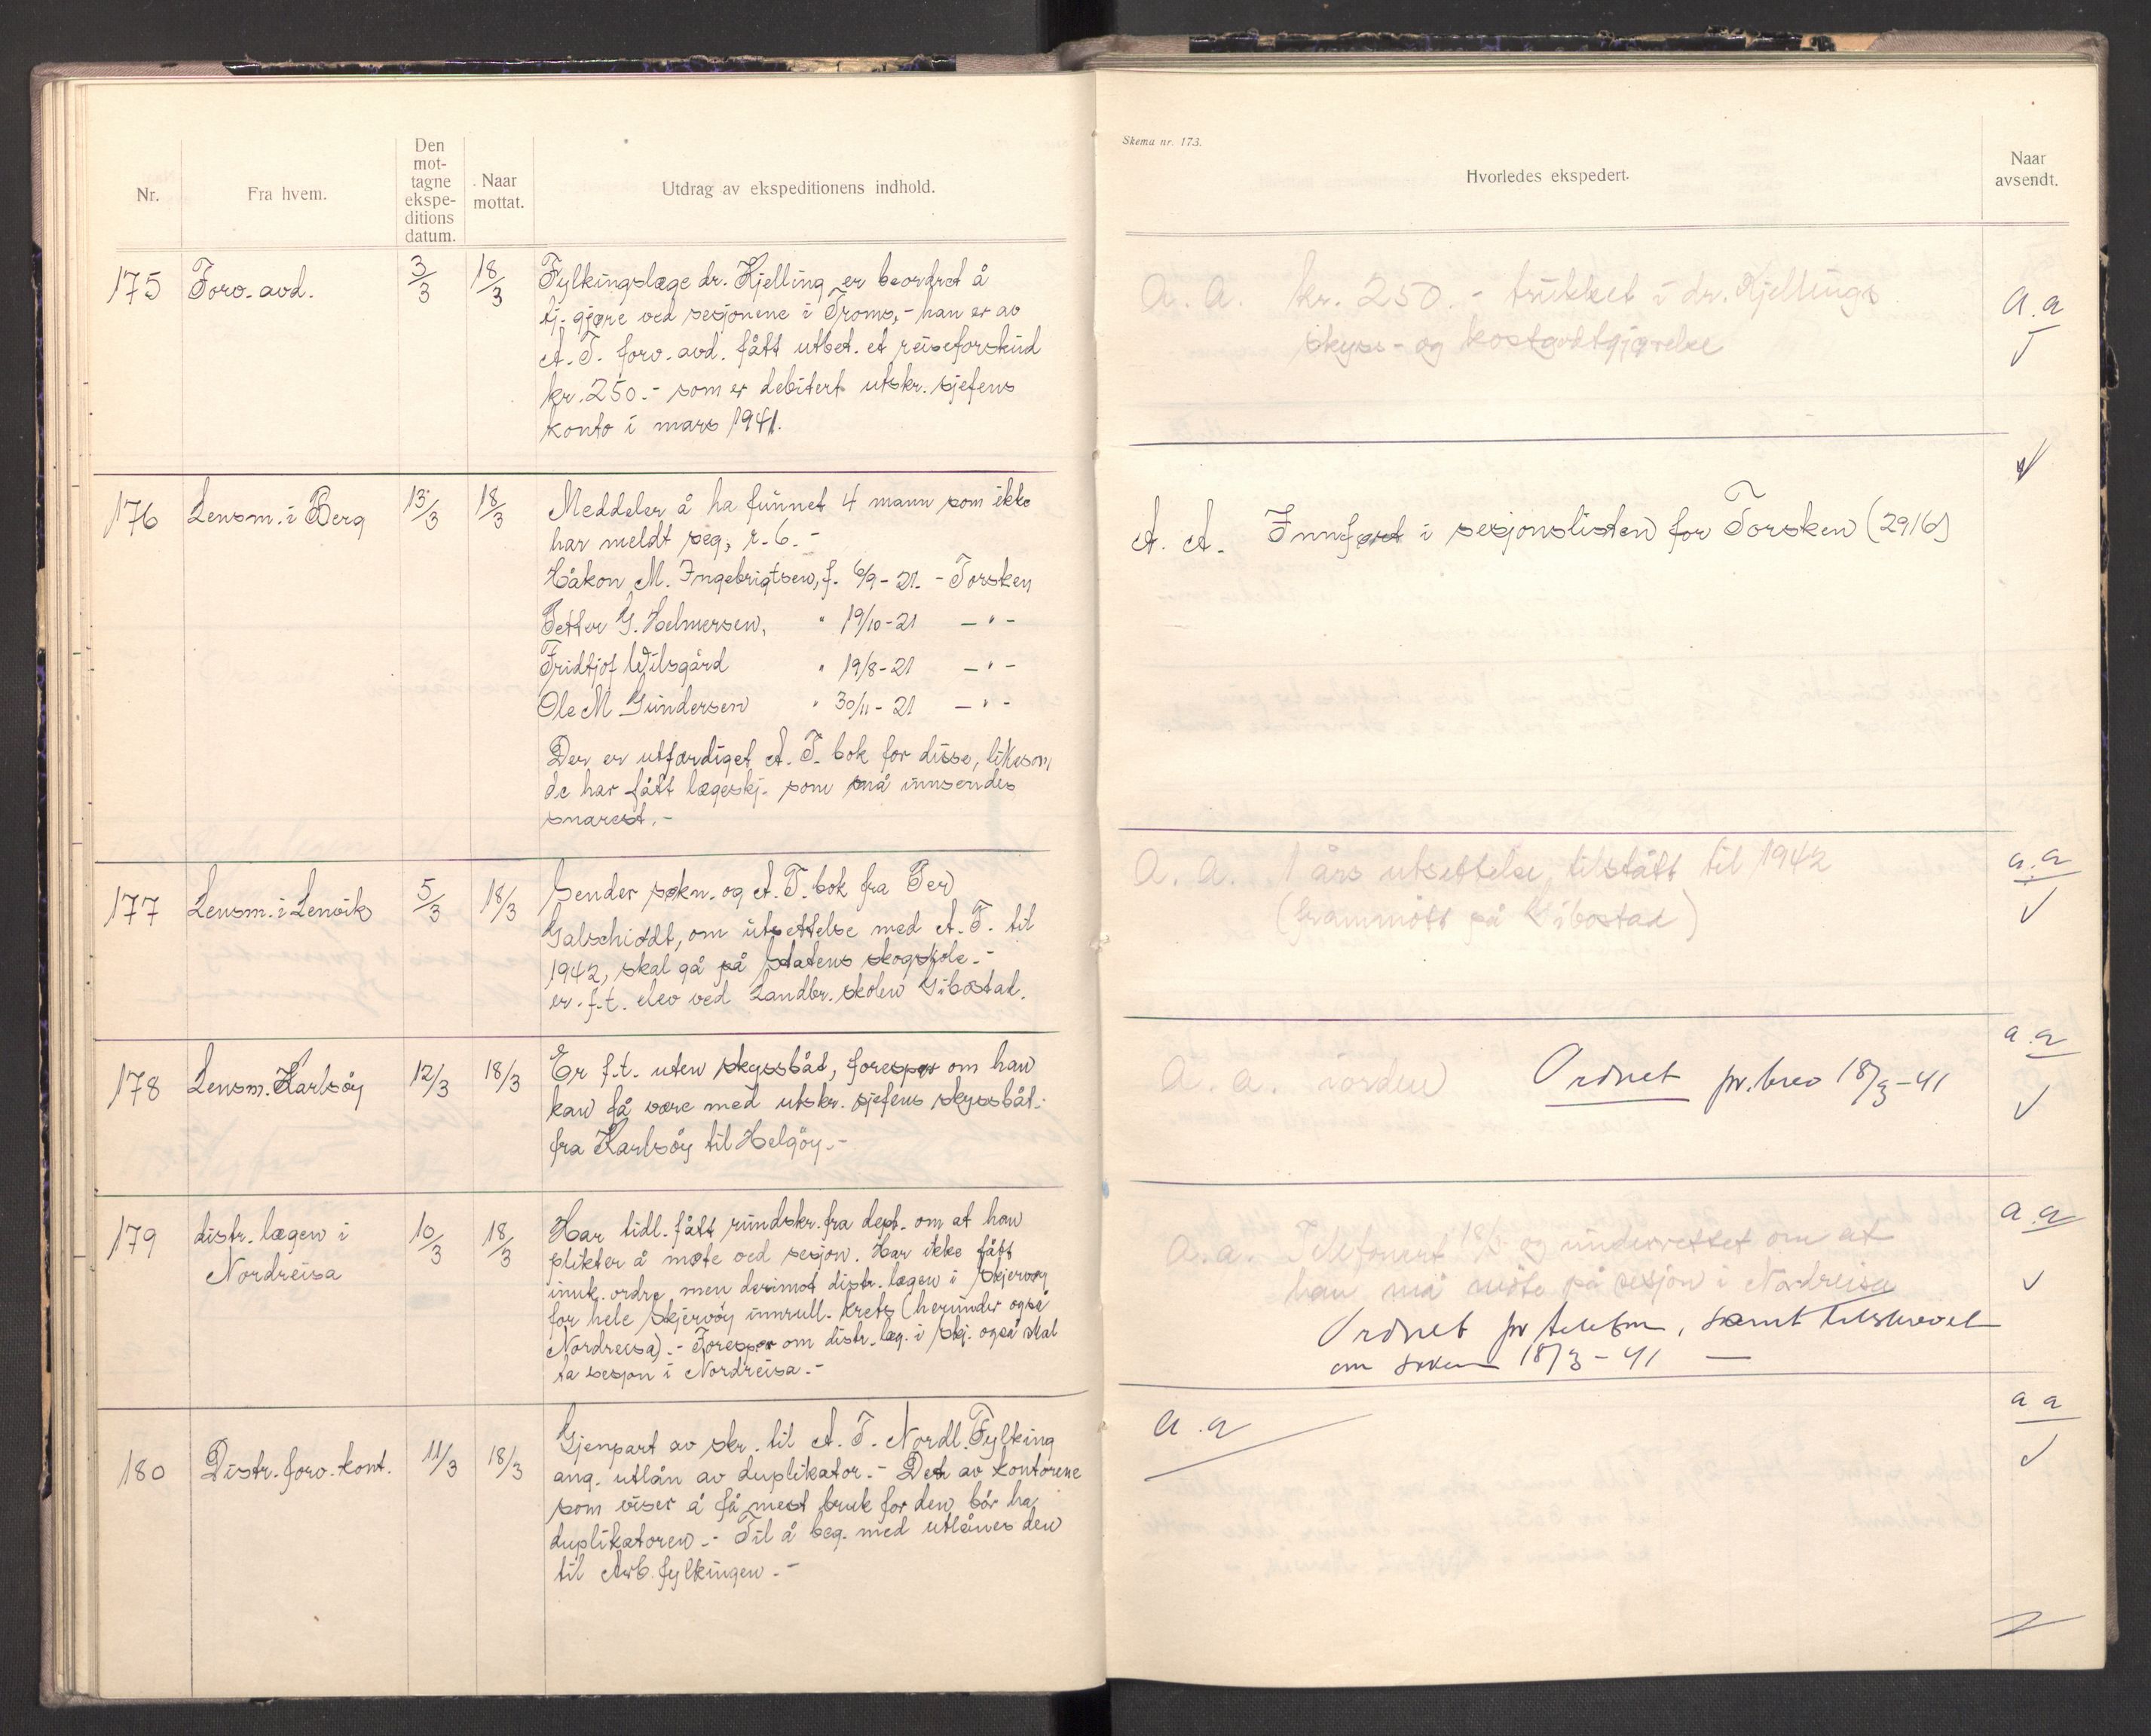 Nr.
Fra hvem.
Den
mot-
tagne
ekspe-
ditions
datum.
Naar
mottat.
Utdrag av ekspeditionens indhold.
175 Forv. avd. 3/3 18/3 Fylkingslæge dr. Kjelling er beordret å
tj. gjøre ved sesjonene i Troms, - han er av
A. T. forv. avd. fått utbet. et reiseforskud
kr. 250.- som er debitert utskr. sjefens
konto i mars 1941.
176 Lensm. i Berg 13/3 18/3 Meddeler å ha funnet 4 mann som ikke
har meldt seg, r. 6. -
Håkon M. Ingebrigtsen, f. 6/9-21. - Torsken
Petter G. Helmersen, " 19/10-21 - " -
Fridtjof Wilsgård " 19/8-21 - " -
Ole M Gundersen " 30/11-21 - " -
Der er utfærdiget A. T. bok for disse, likesom
de har fått lægeskj. som må innsendes
snarest. -
177 Lensm. i Lenvik 5/3 18/3 Sender søkn. og A. T. bok fra Per
Galschiødt, om utsettelse med A. T. til
1942, skal gå på Statens skogskole. -
er. f.t. elev ved Landbr. skolen Gibostad.
178 Lensm. Karlsöy 12/3 18/3 Er f.t. uten skyssbåt, forespør om han
kan få være med utskr. sjefens skyssbåt
fra Karlsöy til Helgöy. -
179 distr. lægen i 10/3 18/3 Har tidl. fått rundskr. fra dept. om at han
Nordreisa plikter å møte ved sesjon. Har ikke fått
innk. ordre men derimot distr. lægen i Skjervøy
for hele Skjervöy innrull. krets (herunder også
Nordreisa). - Forespør om distr. læg. i Skj. også skal
ta sesjon i Nordreisa. -
180 Distr. forv. kont. 11/3 18/3 Gjenpart av skr. til A. T. Nordl. Fylking
ang. utlån av duplikator. - Det av kontorene
som viser å få mest bruk for den bör ha
duplikatoren. - Til å beg. med utlånes den
til Arb. fylkingen. -
Skema nr. 173.
Hvorledes ekspedert.
Naar
avsendt.
A. A. kr. 250.- trukket i dr. Kjellings a.a
skyss- og kostgodtgjørelse
A. A. Innført i sesjonslisten for Torsken (2916)
A. A. 1 års utsettelse tilstått til 1942 a.a
(frammött på Gibostad)
A. a. iorden Ordnet pr. brev 18/3-41 a.a
A. a. Telefonert 18/3 og underrettet om at a.a
han må möte på sesjon i Nordreisa
Ordnet pr telefon, samt tilskrevet
om saken 18/3-41 -
a.a a a